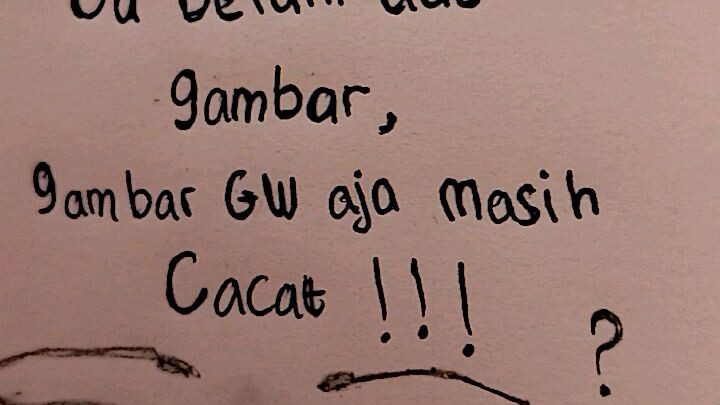 gambar,
gambar GW aja masih
Cacat !!!
?